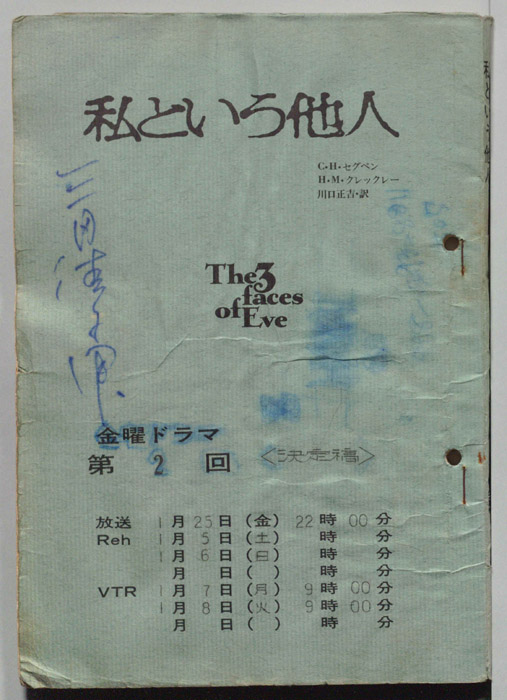 私という他人
C・H・セグペン
H・M・クレックレー
川口正吉・訳
The 3
faces
of Eve
金曜ドラマ
第2回 〈決定稿〉
放送 1月25日(金) 22時00分
Reh 1月5日(土) 時 分
1月6日(日) 時 分
月 日( ) 時 分
VTR 1月7日(月) 9時00分
1月8日(火) 9時00分
月 日( ) 時 分
私という他人